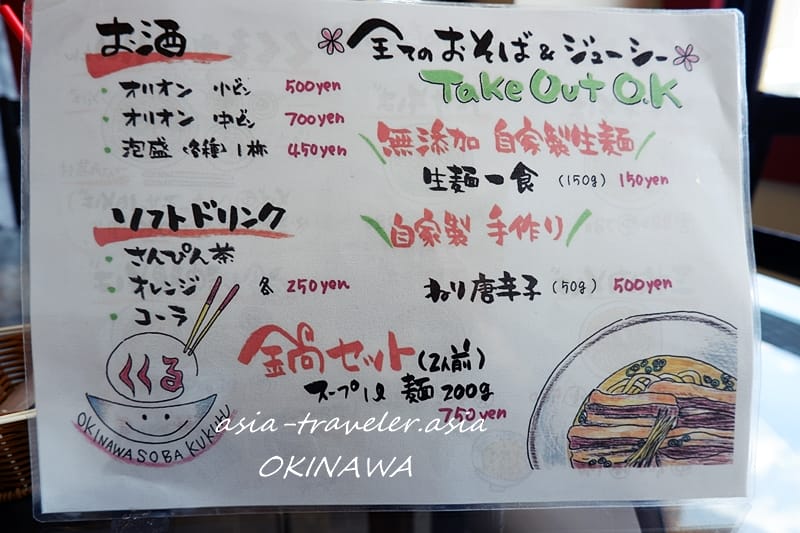 お酒
・オリオン 小ビン 500yen
・オリオン 中ビン 700yen
・泡盛(各種)1杯 450yen
ソフトドリンク
・さんぴん茶
・オレンジ 各 250yen
・コーラ
全てのおそば&ジューシー
Take Out O.K
無添加 自家製生麺
生麺一食 (150g) 150yen
自家製 手作り
ねり唐辛子 (50g) 500yen
鍋セット(2人前)
スープ1ℓ 麺200g
750yen
くくる
OKINAWA SOBA KUKURU
asia-traveler.asia
OKINAWA